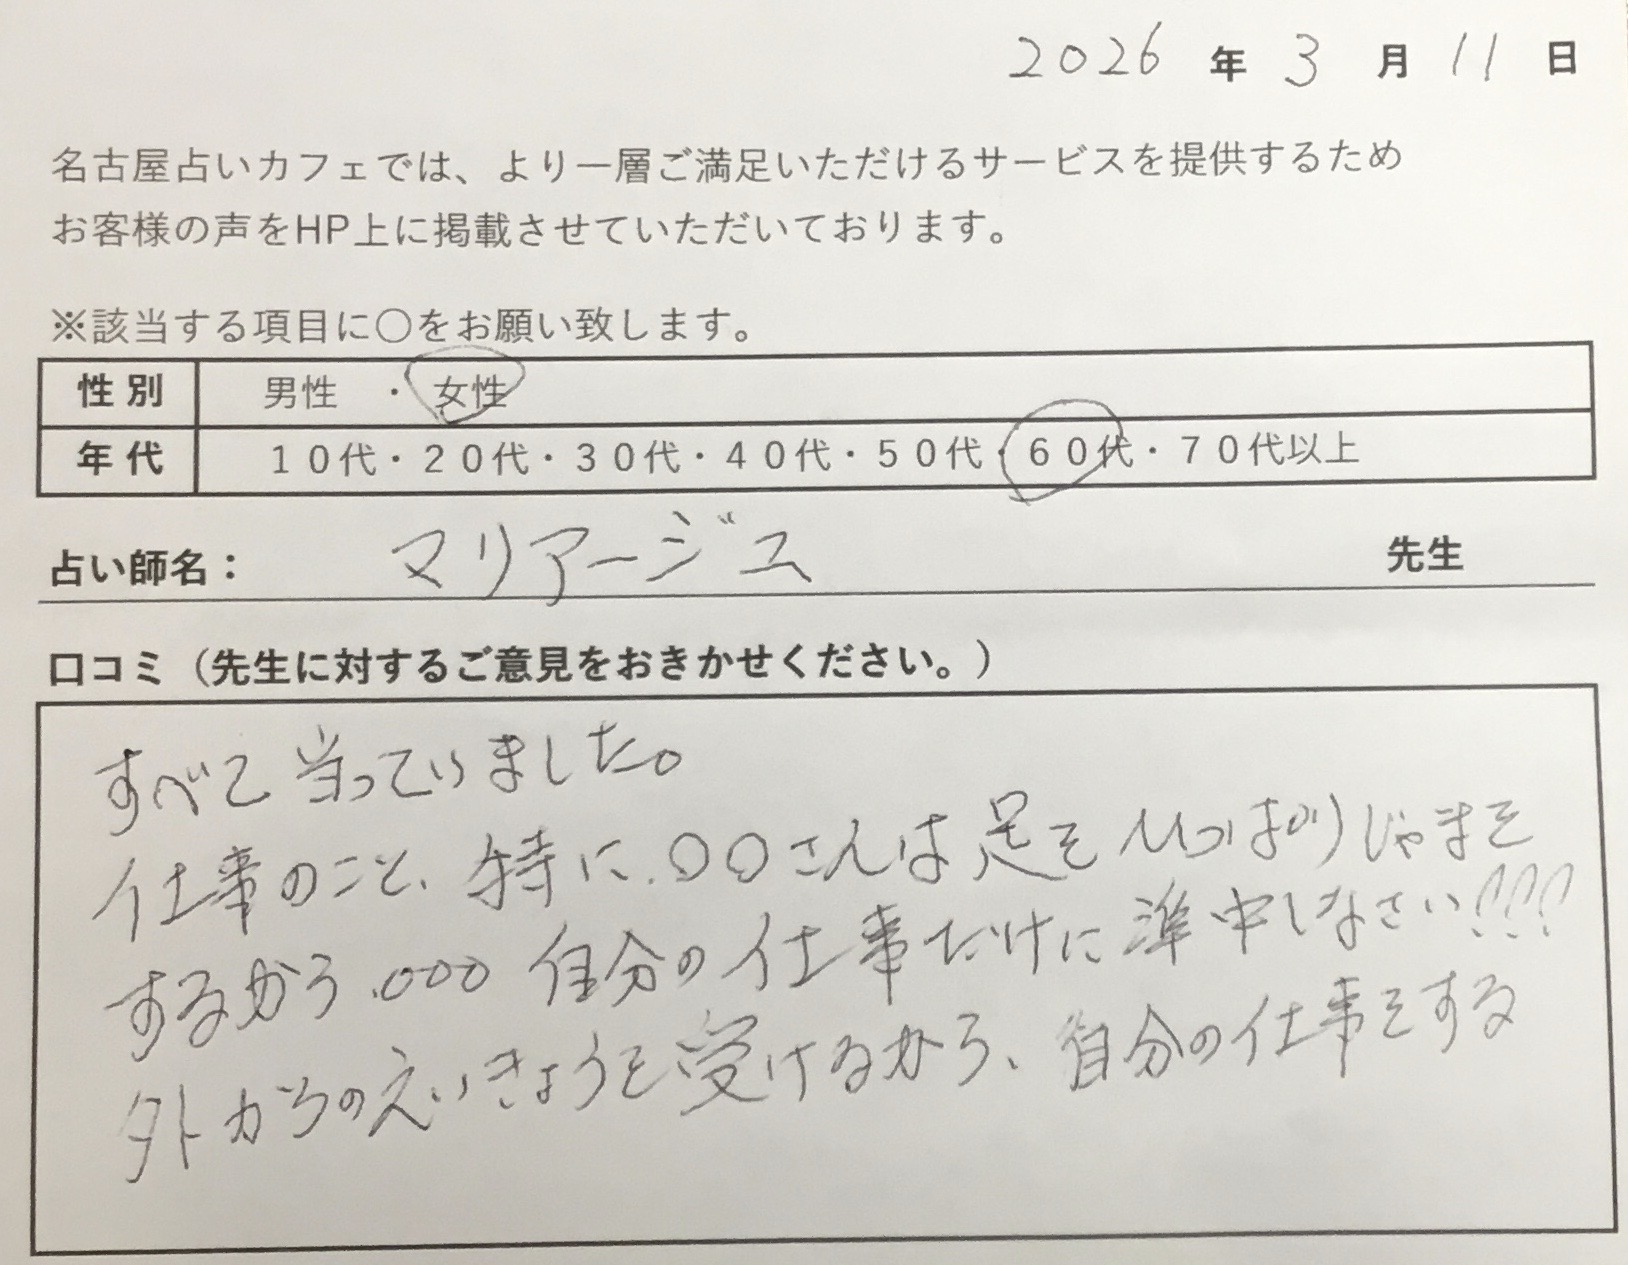 2026 年 3 月 11 日
名古屋占いカフェでは、より一層ご満足いただけるサービスを提供するため
お客様の声をHP上に掲載させていただいております。
※該当する項目に〇をお願い致します。
性別 男性 ・ 女性
年代 10代・20代・30代・40代・50代・60代・70代以上
占い師名： マリアージュ 先生
口コミ（先生に対するご意見をおきかせください。）
すべて当っていました。
仕事のこと、特に、〇〇さんは足をひっぱりじゃまを
するから、〇〇〇 自分の仕事だけに準中しなさい!!!
外からのえいきょうを受けるから、自分の仕事をする